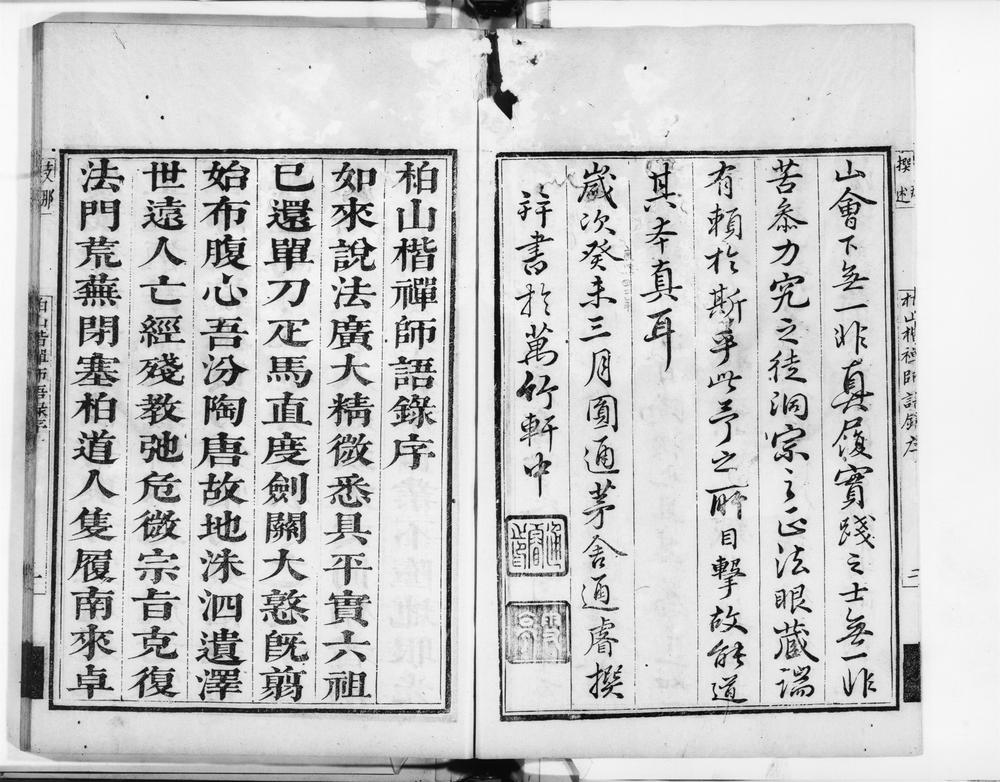 撰述
柏山楷禪師語錄序
二
山會下無一非真履實踐之士無一非
苦叅力究之徒洞宗之正法眼藏端
有頼於斯乎此予之所目擊故能道
其本真耳
嵗次癸未三月圓通茅舍通睿撰
并書於萬竹軒中
柏山楷禪師語錄序
如來說法廣大精微悉具平實六祖
已還單刀疋馬直度劍關大憝旣翦
始布腹心吾汾陶唐故地洙泗遺澤
世遠人亡經殘教弛危微宗旨克復
法門荒蕪閉塞柏道人隻履南來卓
支那
柏山楷禪師語錄序
一